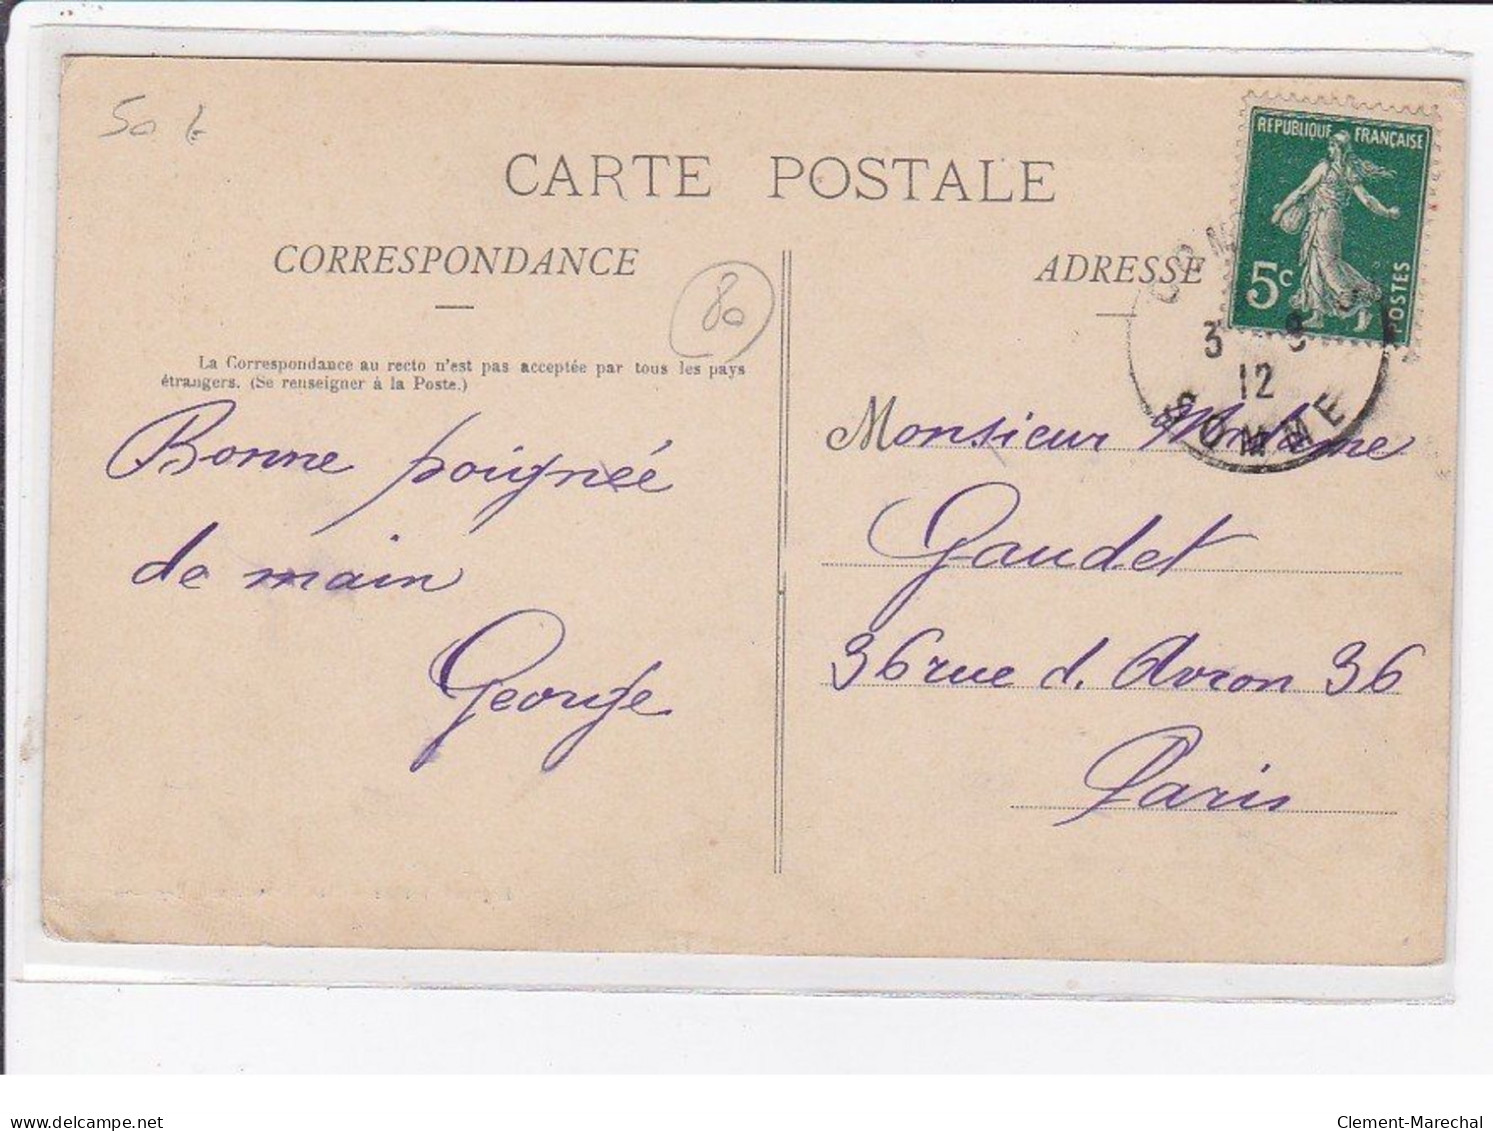 50 €
CARTE POSTALE
REPUBLIQUE FRANÇAISE
5c
POSTES
CORRESPONDANCE
80
ADRESSE
3
12
SOMME
La Correspondance au recto n'est pas acceptée par tous les pays
étrangers. (Se renseigner à la Poste.)
Bonne poignée
de main
George
Monsieur Madame
Gaudet
36 rue d. Avron 36
Paris
delcampe.net
Clement-Marechal